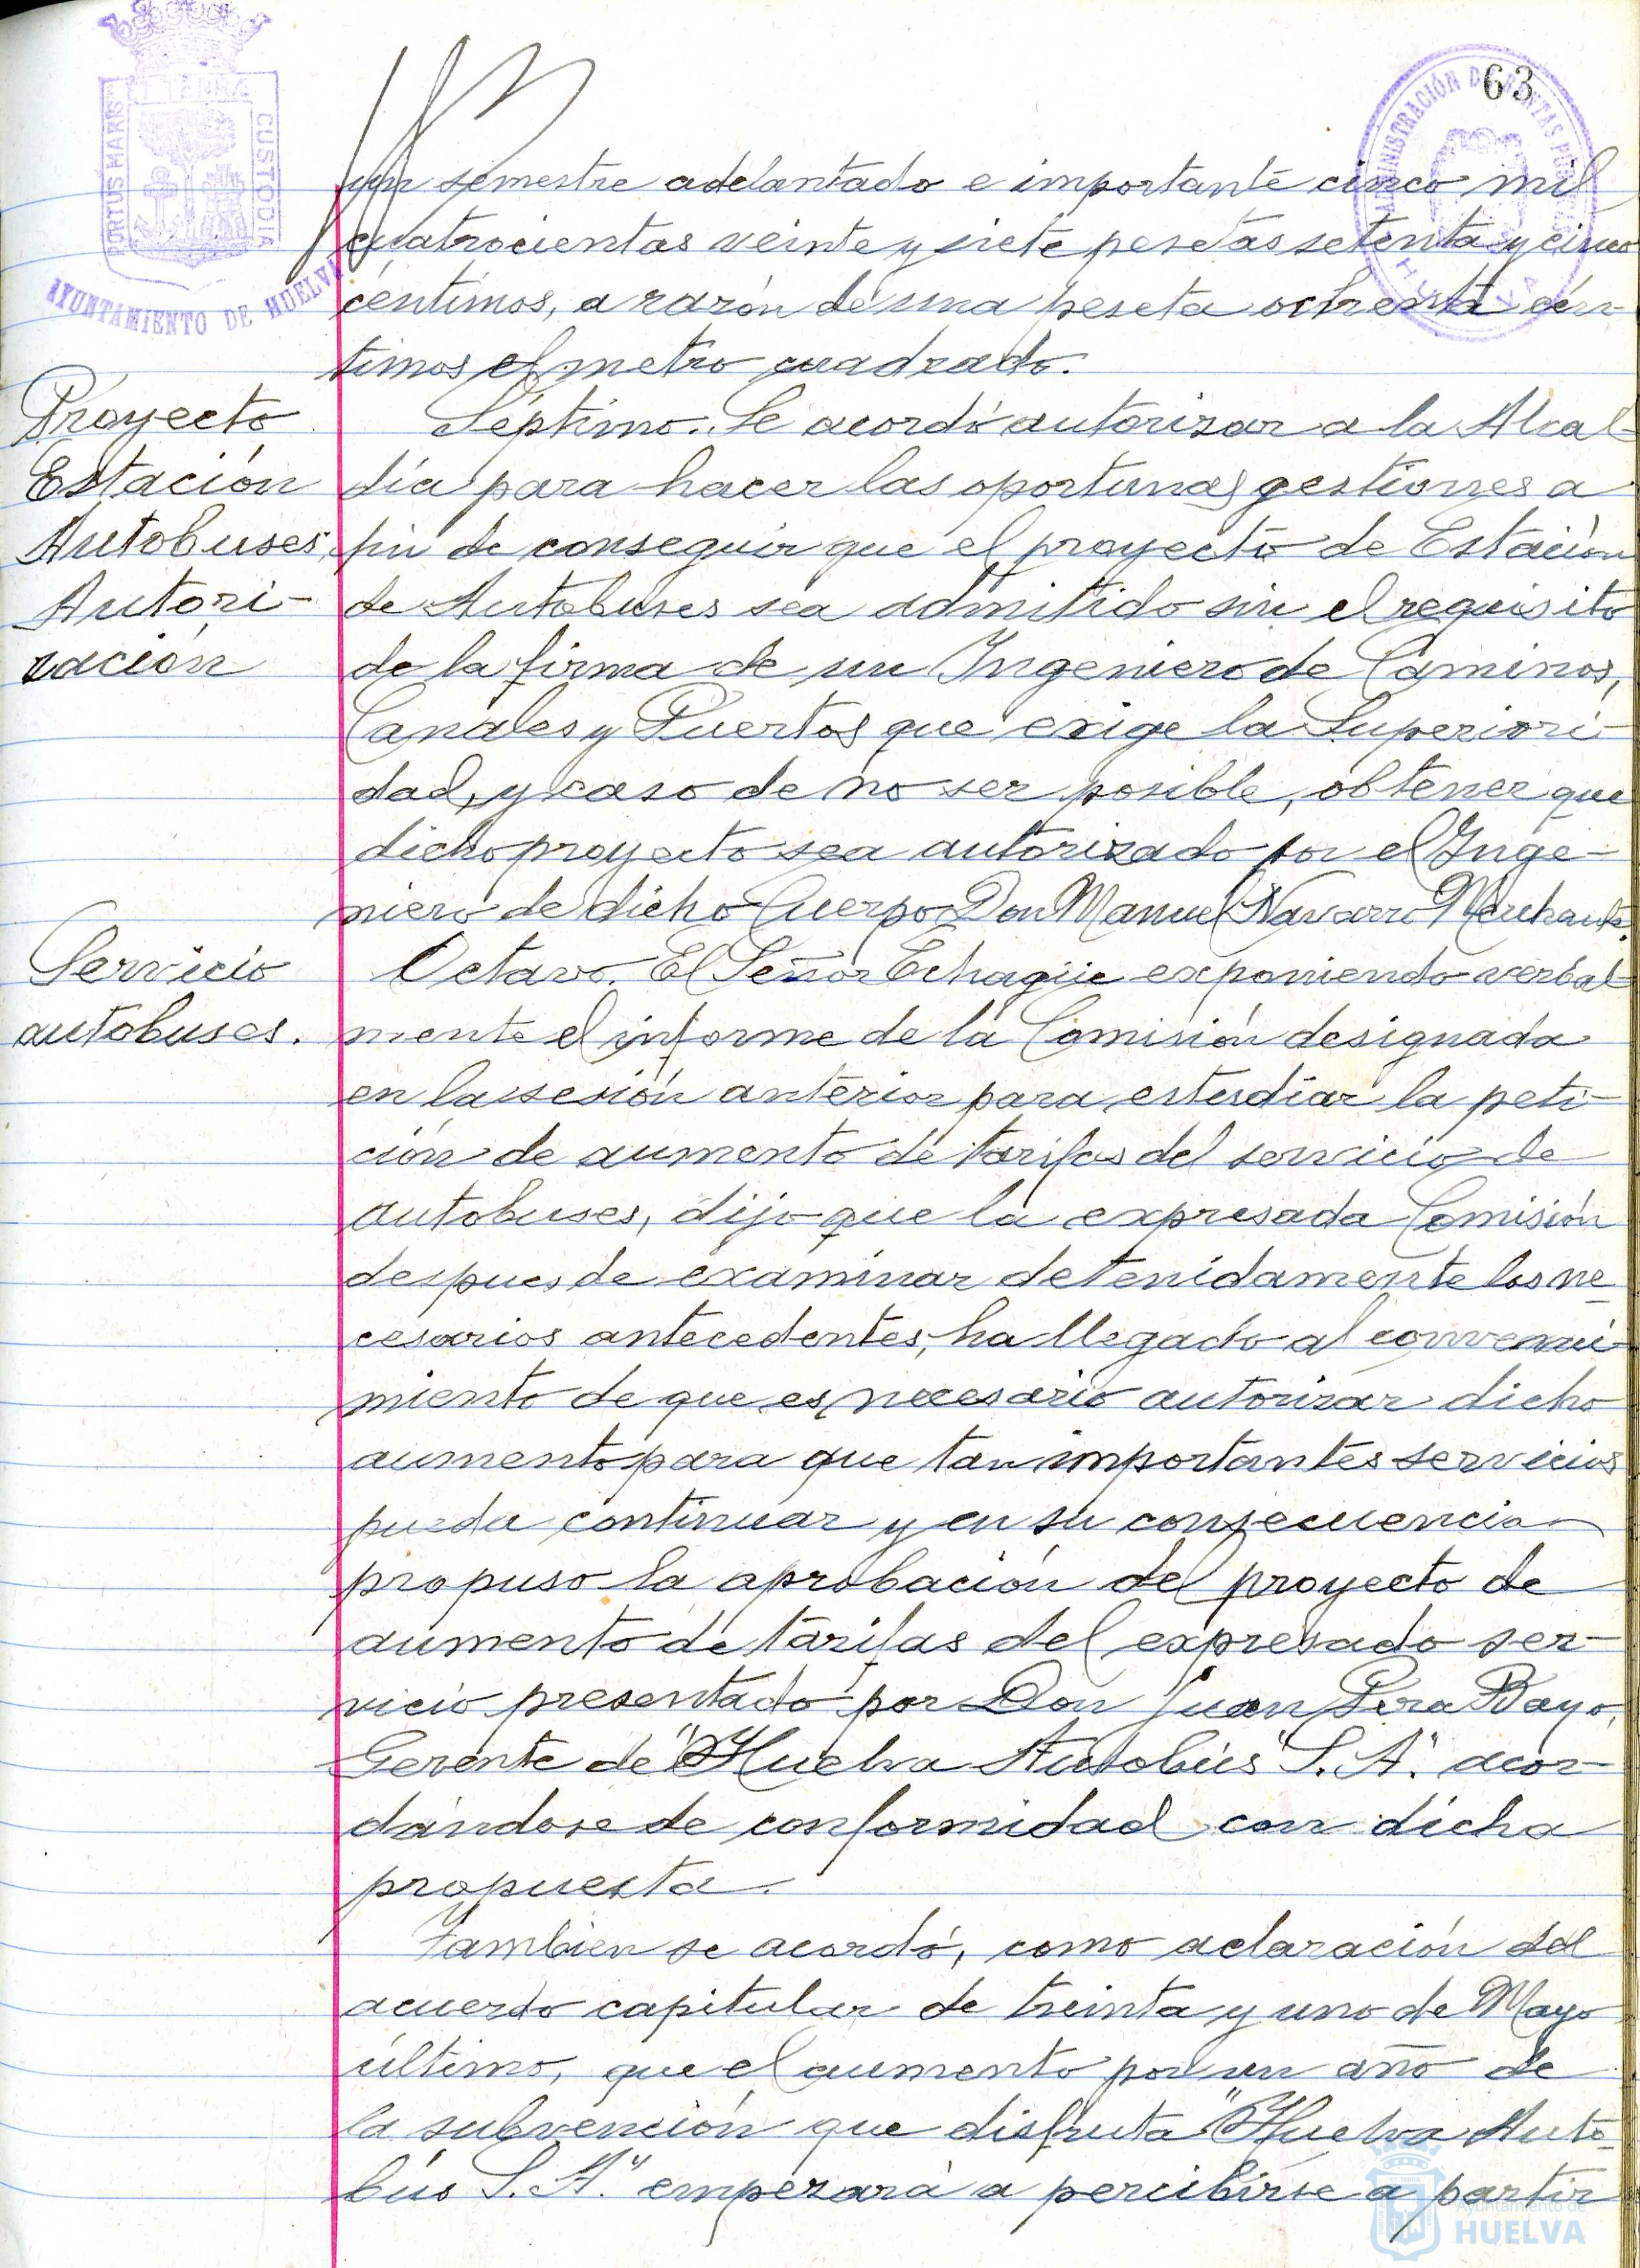 63
PORTUS MARIS
ET TERRA
CUSTODIA
AYUNTAMIENTO DE HUELVA
ADMINISTRACIÓN DE RENTAS PUBLICAS
HUELVA
un semestre adelantado e importante cinco mil
cuatrocientas veinte y siete pesetas setenta y cinco
céntimos, a razón de una peseta ochenta cén-
timos el metro cuadrado.
Proyecto
Estación
Autobuses.
Autori-
zación
Séptimo. Se acordó autorizar a la Alcal-
día para hacer las oportunas gestiones a
fin de conseguir que el proyecto de Estación
de Autobuses sea admitido sin el requisito
de la firma de un Ingeniero de Caminos,
Canales y Puertos que exige la Superiori-
dad, y caso de no ser posible, obtener que
dicho proyecto sea autorizado por el Inge-
niero de dicho Cuerpo Don Manuel Navarro Merchante.
Servicio
autobuses.
Octavo. El Señor Echagüe exponiendo verbal-
mente el informe de la Comisión designada
en la sesión anterior para estudiar la peti-
ción de aumento de tarifas del servicio de
autobuses, dijo que la expresada Comisión
despues de examinar detenidamente los ne-
cesarios antecedentes, ha llegado al convenci-
miento de que es necesario autorizar dicho
aumento para que tan importantes servicios
pueda continuar y en su consecuencia
propuso la aprobación del proyecto de
aumento de tarifas del expresado ser-
vicio presentado por Don Juan Pera Bayo,
Gerente de "Huelva Autobús S.A." acor-
dándose de conformidad con dicha
propuesta.
Tambien se acordó, como aclaración del
acuerdo capitular de treinta y uno de Mayo
último, que el aumento por un año de
la subvención que disfruta "Huelva Auto-
bús S.A." empezará a percibirse a partir
Ayuntamiento de
HUELVA